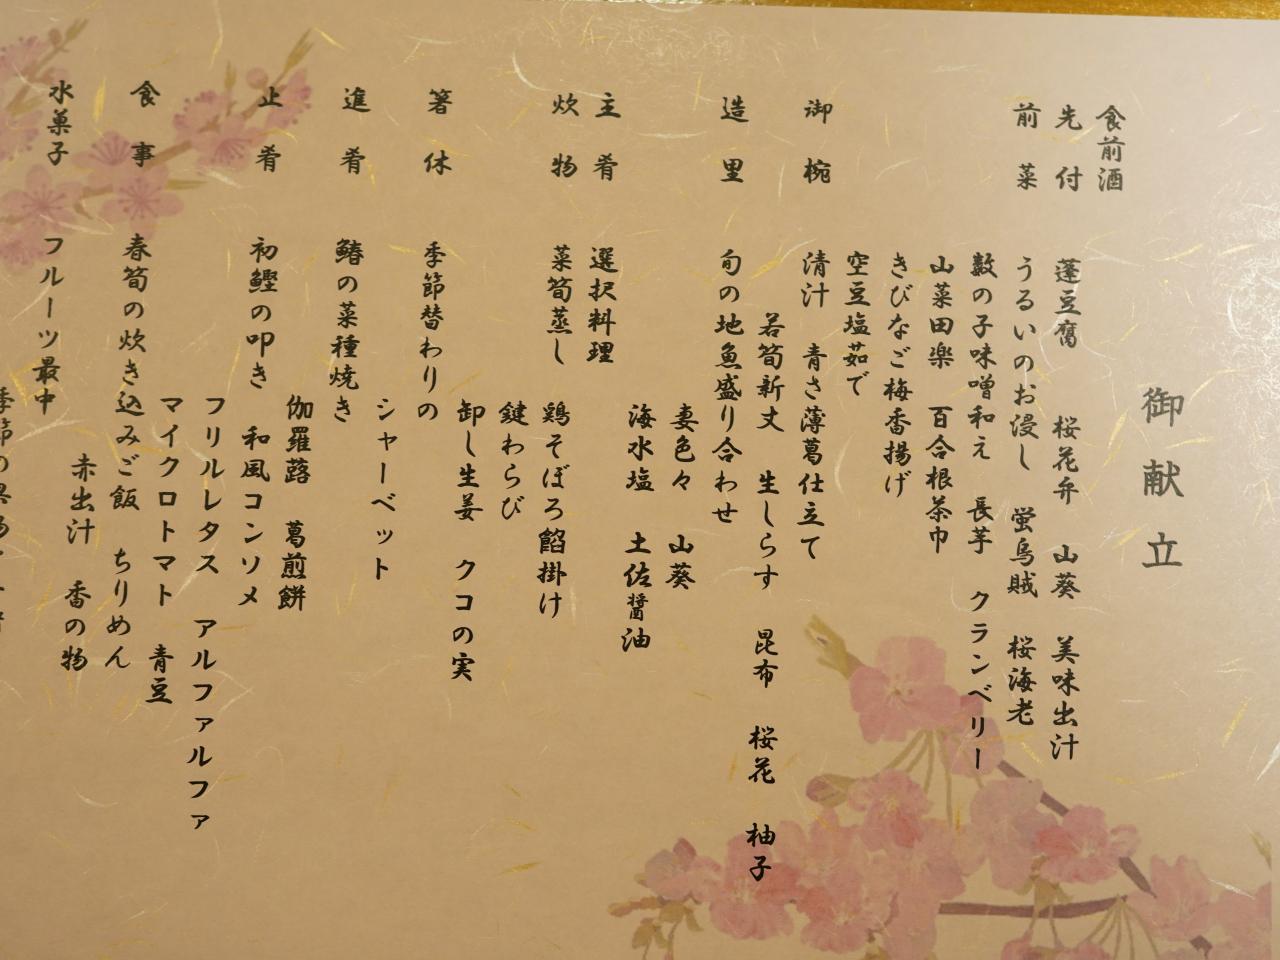 御献立
食前酒
先付 蓬豆腐 桜花弁 山葵 美味出汁
前菜 うるいのお浸し 蛍烏賊 桜海老
数の子味噌和え 長芋 クランベリー
山菜田楽 百合根茶巾
きびなご梅香揚げ
空豆塩茹で
御椀 清汁 青さ薄葛仕立て
若筍新丈 生しらす 昆布 桜花 柚子
造里 旬の地魚盛り合わせ
妻色々 山葵
海水塩 土佐醤油
主肴 選択料理
炊物 菜筍蒸し
鶏そぼろ餡掛け
鍵わらび
卸し生姜 クコの実
箸休 季節替わりの
シャーベット
進肴 鰆の菜種焼き
伽羅蕗 葛煎餅
止肴 初鰹の叩き 和風コンソメ
フリルレタス アルファルファ
マイクロトマト 青豆
食事 春筍の炊き込みご飯 ちりめん
赤出汁 香の物
水菓子 フルーツ最中
季節の